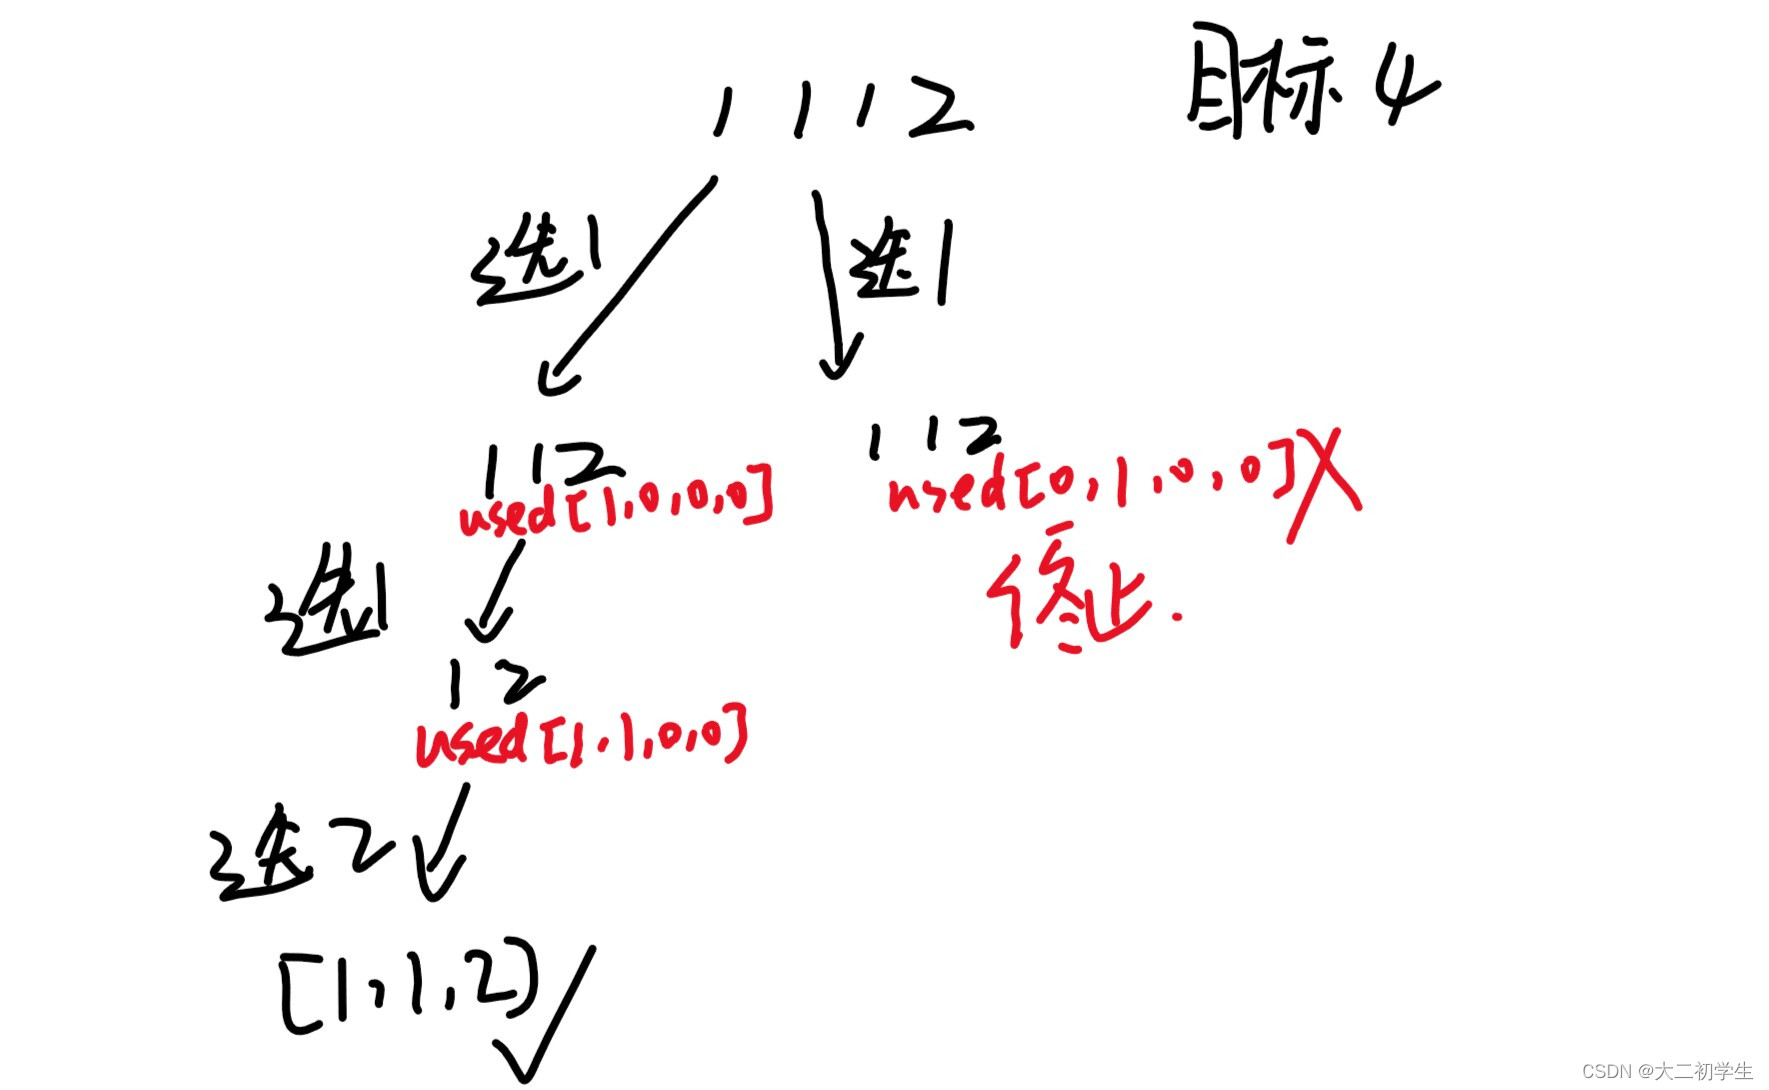 1 1 1 2 目标 4
选1 选1
1 1 2 1 1 2
used[1,0,0,0] used[0,1,0,0]X
终止.
选1
1 2
used[1.1,0,0]
选2
[1,1,2]
CSDN @大二初学生